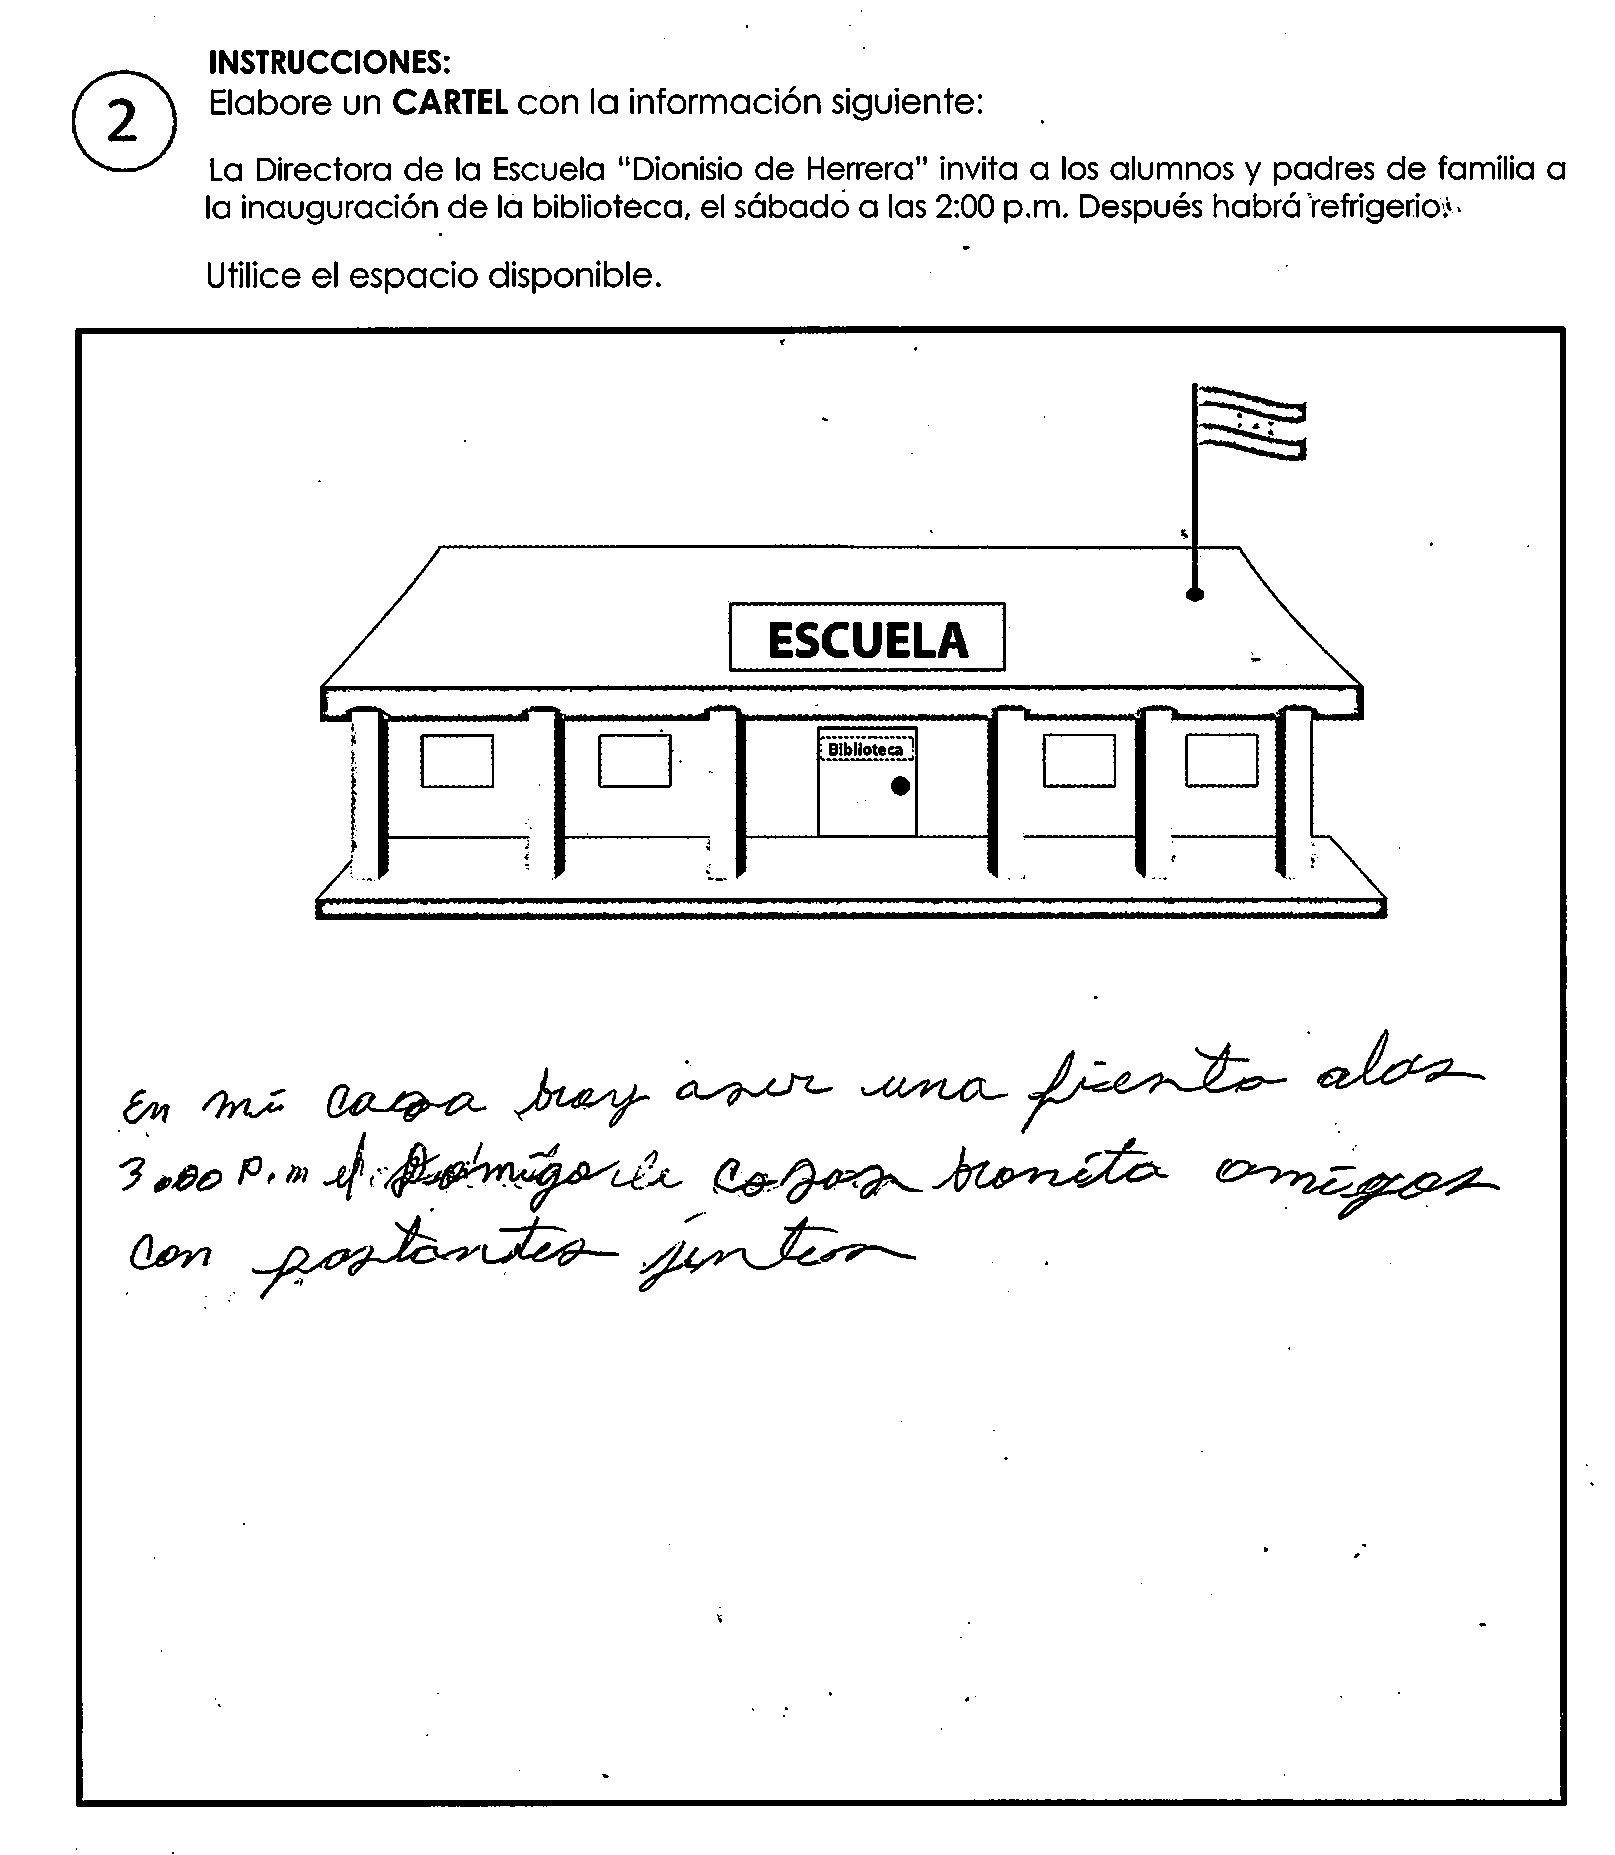 INSTRUCCIONES:
2
Elabore un CARTEL con la información siguiente:
La Directora de la Escuela "Dionisio de Herrera" invita a los alumnos y padres de familia a
la inauguración de la biblioteca, el sábado a las 2:00 p.m. Después habrá refrigerio.
Utilice el espacio disponible.
ESCUELA
Biblioteca
En mi casa boy aser una fiesta alas
3:00 P.m el cosas bonita amigos
con juntos